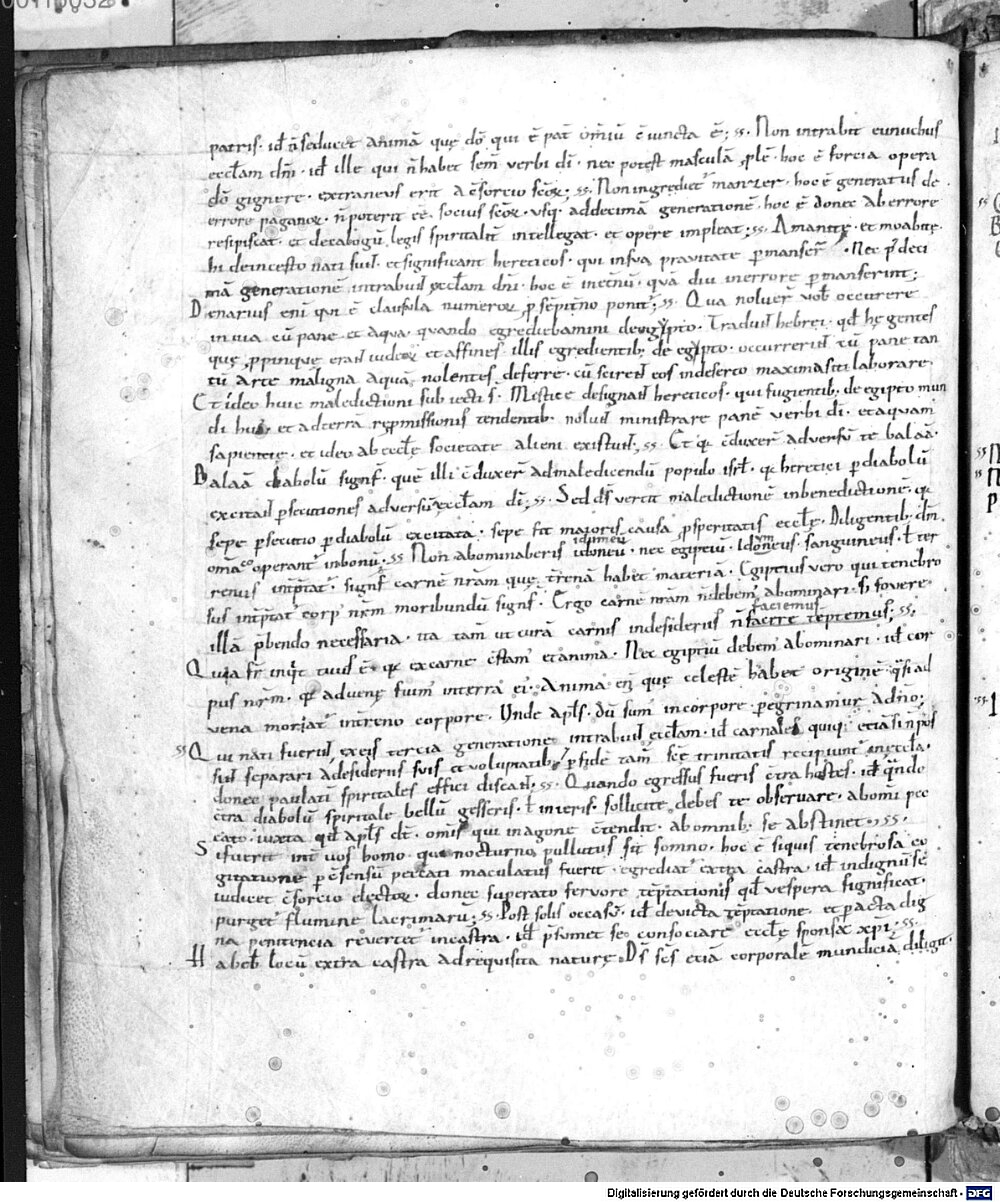 patris · id ñ seducet animā quę dō qui ē pat̄ om̄iū c̄iuncta ē; Non intrabit eunuchus
eccl̄am dn̄i · id ille qui n̄ habet sem̄ verbi dī · nec potest masculā plē · hoc ē forcia opera
dō gignere · extraneus erit a c̄sorcio sc̄or; Non ingrediet̄ manzer · hoc ē generatus de
errore paganor · n̄ poterit eē socius sc̄or usq; addecimā generationē · hoc ē donec ab errore
resipiscat · et decalogū legis spiritalit̄ intellegat · et opere impleat; Amanitę · et moabitę
hi deincesto nati sun̄t · et significant hereticos · qui insua pravitate pmanser̄ · Nec p deci
mā generationē intrabun̄t eccl̄am dn̄i · hoc ē inet̄nū · quā diu inerrore pmanserint;
Denarius enī qui ē clausula numeror p sēpit̄no ponit̄; Qua noluer̄ vob̄ occurere
in via cū pane et aqua · quando egrediebamini deęgypto · Tradun̄t hebrei · qd̄ hę gentes
quę ppinquę eran̄t iudeor et affines · illis egredientib; de egypto · occurrerin̄t cū pane tan
tū arte maligna aquā nolentes deferre · cū sciren̄t eos indeserto maxima siti laborare
Et ideo huic maledictioni subiecti s̄ · Mistice designan̄t hereticos · qui fugientib; de egipto mun
di huī · et adterrā repmissionis tendentib; nolun̄t ministrare panē verbi dī · et aquam
sapientię · et ideo ab eccl̄ę societate alieni existun̄t; Et q; c̄duxer̄ adversū te balaā ·
Balaā diabolū signf̄ · quē illi c̄duxer̄ admaledicendū populo isrl̄ · q; heretici p diabolū
excitan̄t psecutiones adversū eccl̄am dī; Sed dś vertit maledictionē inbenedictionē · q;
sepe psecutio p diabolū excitata · sepe fit maioris causa psperitatis eccl̄ę · Diligentib; dm̄
om̄a cooperant̄ inbonū · Non abominaberis idoneū nec egiptiū · Idoneus sanguineus · t̄ ter
idumeū um
renus int̄ptat̄ · signf̄ carnē nr̄am quę t̄renā habet materiā · Egiptius vero qui tenebro
sus int̄ptat̄ corp nr̄m moribundū signf̄ · Ergo carnē nr̄am n̄ debem̄ abominari · sī fovere
illā p̄bendo necessaria · ita tam̄ ut curā carnis indesideriis n̄ facere teptemus;
faciemus
Quia fr̄ inqt̄ tuus ē · q; ex carne c̄stam̄ et anima · Nec egiptiū debem̄ abominari · id̄ cor
pus nr̄m · q; advenę fuim̄ interra eī · Anima en̄ quę celestē habet originē · qsi ad
vena morat̄ int̄reno corpore · Unde apls̄ · dū sum̄ in corpore peregrinamur a dn̄o;
Qui nati fuerin̄t exeis tercia generatione intrabun̄t eccl̄am · id̄ carnales quiqi etiāsi n̄ pos
sun̄t separari adesideriis suis et voluptatib; p fidē tam̄ scę trinitatis recipiunt̄ ineccl̄a ·
donec paulatī spiritales effici discan̄t; Quando egressus fueris c̄tra hostes · id̄ qndo
c̄tra diabolū spiritale bellū gesseris · t̄ inieris · sollicite debes te observare · abomī pec
cato · iuxta qd̄ apls̄ dt̄ · om̄is qui inagone c̄tendit · abomnib; se abstinet ·
Si fuerit int̄ vos homo · qui nocturno pullutus sit somno · hoc ē siquis tenebrosa co
gitatione p c̄sensū peccati maculatus fuerit · egrediat̄ extra castra · id̄ indignū se
iudicet c̄sorcio elector · donec superato fervore tēptationis qd̄ vespera significat ·
purget̄ flumine lacrimarū; Post solis occasū · id̄ devicta tēptatione · et pacta dig
na penitencia revertet̄ incastra · id̄ p̄sumet se consociare eccl̄ę sponsę xpī;
Habeb̄ locū extra castra adrequisita naturę · Dś sc̄s etiā corporalē mundiciā diligit ·